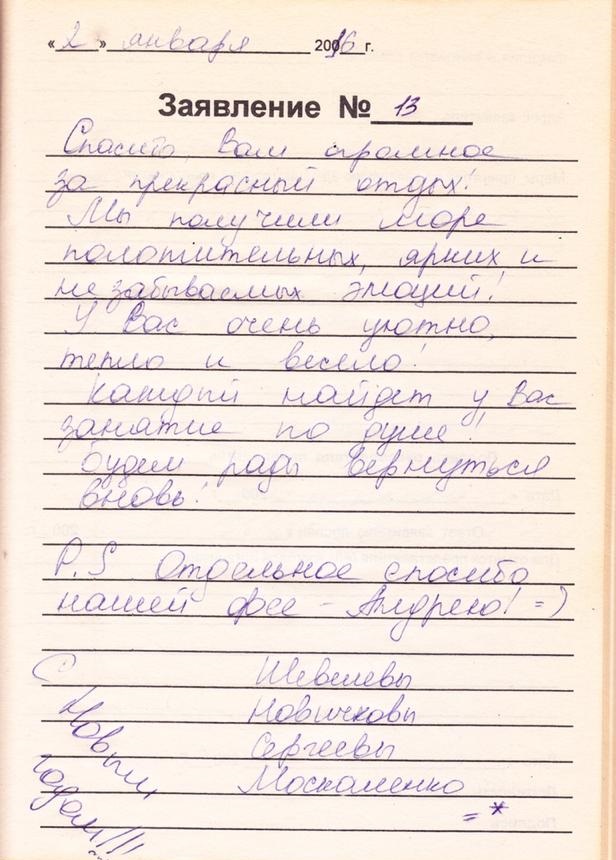 « 2 » января 2016 г.
Заявление № 13
Спасибо, Вам огромное
за прекрасный отдых!
Мы получили море
положительных, ярких и
незабываемых эмоций!
У Вас очень уютно,
тепло и весело!
Каждый найдет у Вас
занятие по душе!
будем рады вернуться
вновь!
P.S Отдельное спасибо
нашей фее - Андрею! =)
Шевелевы
Новичковы
Сергеевы
Москаленко
= *
С
Новым
годом!!!